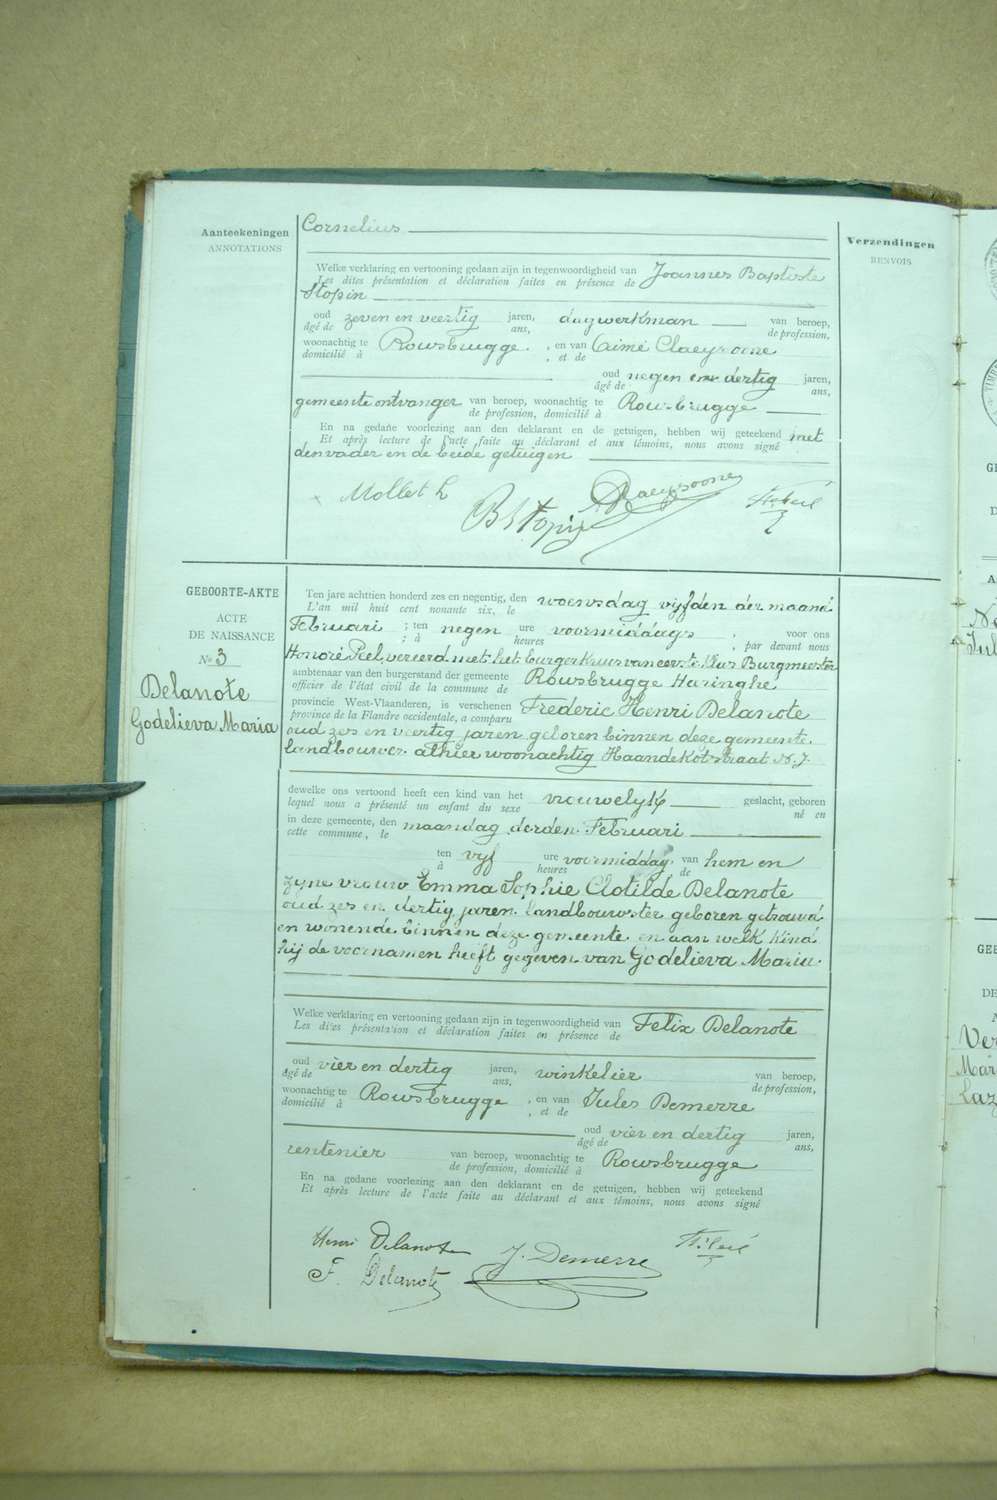 Aanteekeningen
ANNOTATIONS
Cornelius
Verzendingen
RENVOIS
Welke verklaring en vertooning gedaan zijn in tegenwoordigheid van Joannes Baptiste
Les dites présentation et déclaration faites en présence de
Stopin
oud zeven en veertig jaren, dagwerkman van beroep,
âgé de ans, de profession,
woonachtig te Rousbrugge, en van Aimé Claeysoone
domicilié à , et de
oud negen en dertig jaren,
âgé de ans,
gemeente ontvanger van beroep, woonachtig te Rousbrugge
de profession, domicilié à
En na gedane voorlezing aan den deklarant en de getuigen, hebben wij geteekend met
Et après lecture de l'acte faite au déclarant et aux témoins, nous avons signé
den vader en de beide getuigen
Mollet h
B Stopin
Claeysoone
GEBOORTE-AKTE
ACTE
DE NAISSANCE
No 3
Delanote
Godelieva Maria
Ten jare achttien honderd zes en negentig, den woensdag vyfden der maand
L'an mil huit cent nonante six, le
Februari ; ten negen ure voormiddags , voor ons
; à heures , par devant nous
Honoré Peel, vereerd met het burgerkruis van eerste klas Burgmeester
ambtenaar van den burgerstand der gemeente Rousbrugge Haringhe
officier de l'état civil de la commune de
provincie West-Vlaanderen, is verschenen Frederic Henri Delanote
province de la Flandre occidentale, a comparu
oud zes en veertig jaren geboren binnen deze gemeente,
landbouwer alhier woonachtig Haandekotstraat N. 7.
dewelke ons vertoond heeft een kind van het vrouwelyk geslacht, geboren
lequel nous a présenté un enfant du sexe né en
in deze gemeente, den maandag derden Februari
cette commune, le
ten vyf ure voormiddag van hem en
à heures de
zyne vrouw Emma Sophie Clotilde Delanote
oud zes en dertig jaren landbouwster geboren getrouwd
en wonende binnen deze gemeente en aan welk kind
hij de voornamen heeft gegeven van Godelieva Maria.
Welke verklaring en vertooning gedaan zijn in tegenwoordigheid van Felix Delanote
Les dites présentation et déclaration faites en présence de
oud vier en dertig jaren, winkelier van beroep,
âgé de ans, de profession,
woonachtig te Rousbrugge, en van Jules Demerre
domicilié à , et de
oud vier en dertig jaren,
âgé de ans,
rentenier van beroep, woonachtig te Rousbrugge
de profession, domicilié à
En na gedane voorlezing aan den deklarant en de getuigen, hebben wij geteekend
Et après lecture de l'acte faite au déclarant et aux témoins, nous avons signé
Henri Delanote
F. Delanote
J. Demerre